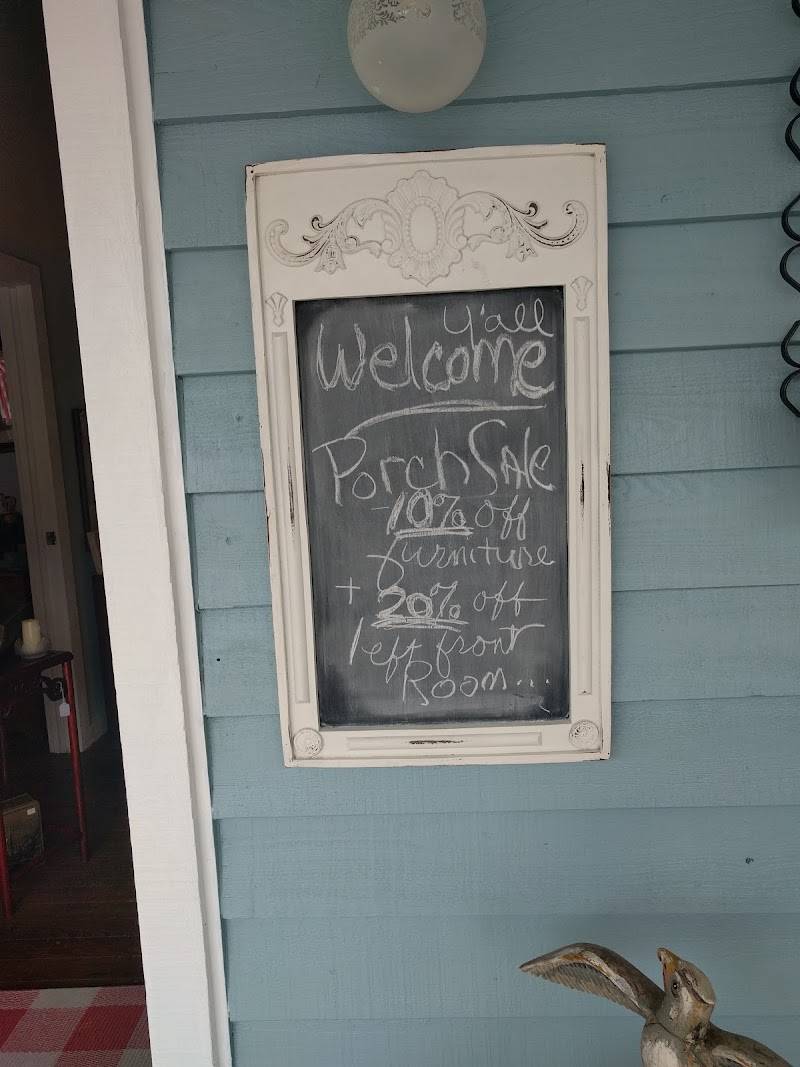 Y'all
Welcome
Porch Sale
-10% off
furniture
+ 20% off
left front
Room...